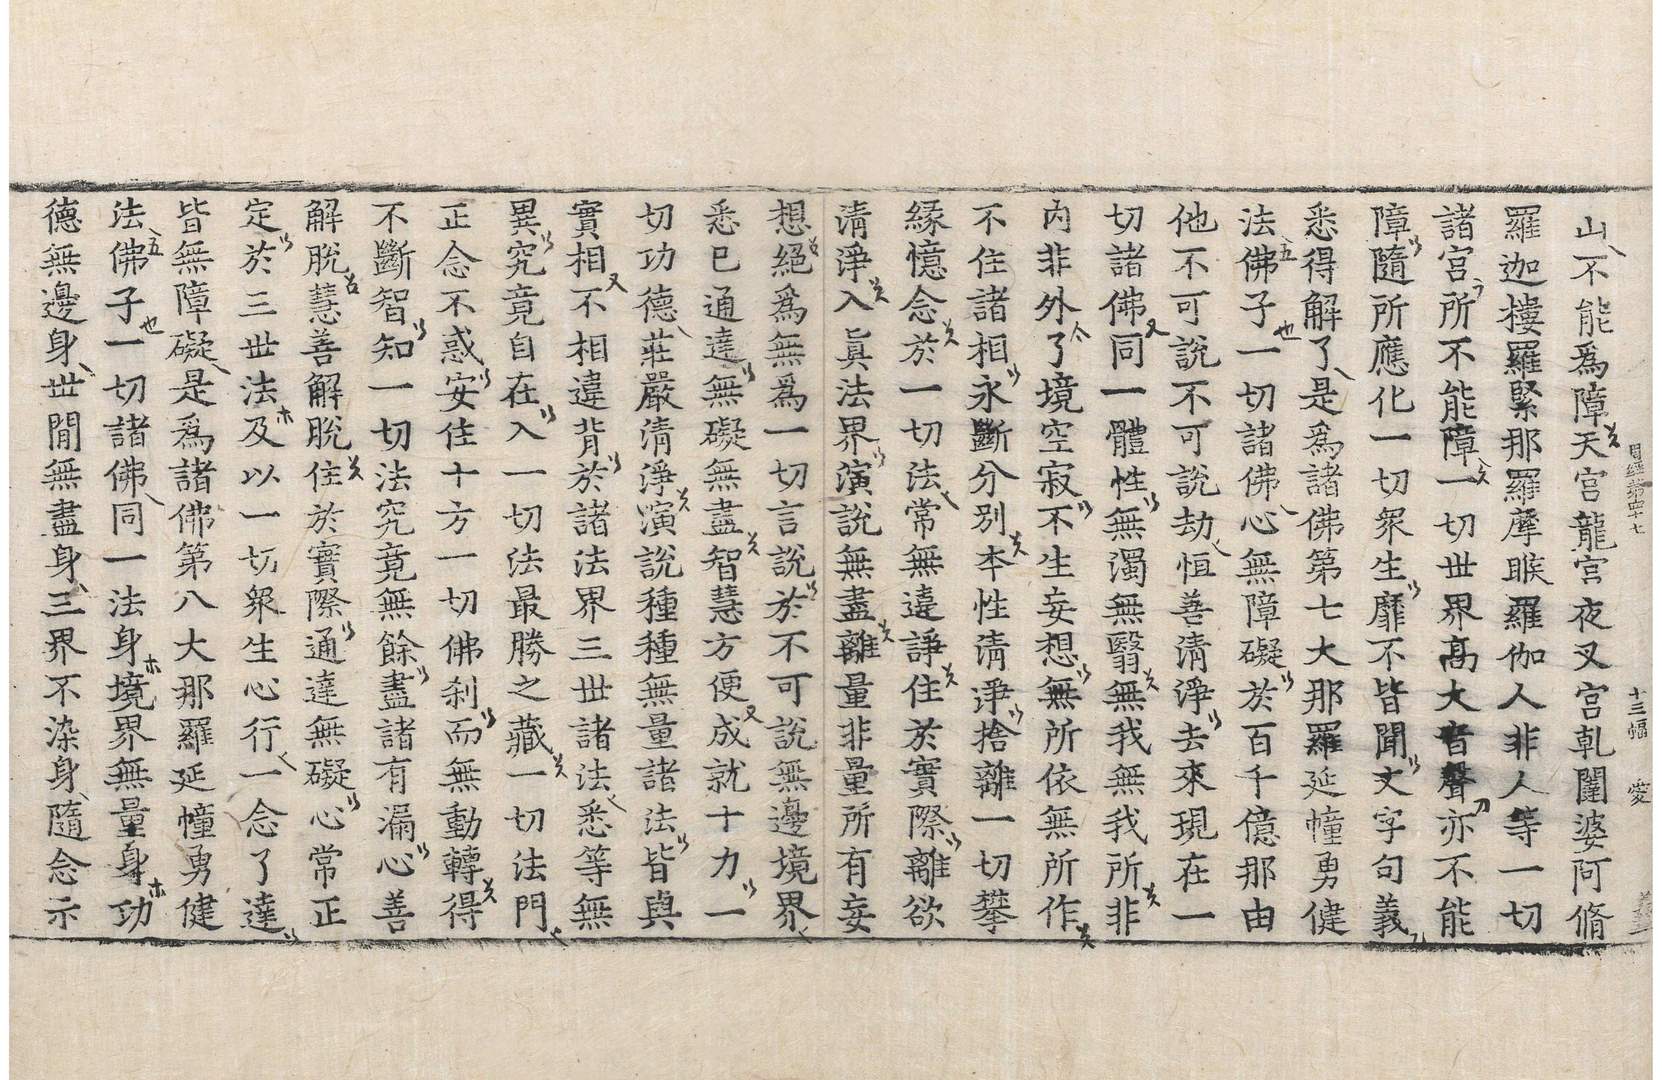 山不能爲障天宮龍宮夜叉宮乹闥婆阿脩
羅迦樓羅緊那羅摩睺羅伽人非人等一切
諸宮所不能障一切世界高大音聲亦不能
障隨所應化一切衆生靡不皆聞文字句義
悉得解了是爲諸佛第七大那羅延幢勇健
法佛子一切諸佛心無障礙於百千億那由
他不可說不可說劫恒善清淨去來現在一
切諸佛同一體性無濁無翳無我無我所非
内非外了境空寂不生妄想無所依無所作
不住諸相永斷分別本性清淨捨離一切攀
縁憶念於一切法常無違諍住於實際離欲
清淨入眞法界演說無盡離量非量所有妄
想絕爲無爲一切言說於不可說無邊境界
悉已通達無礙無盡智慧方便成就十力一
切功德莊嚴清淨演說種種無量諸法皆與
實相不相違背於諸法界三世諸法悉等無
異究竟自在入一切法最勝之藏一切法門
正念不惑安住十方一切佛刹而無動轉得
不斷智知一切法究竟無餘盡諸有漏心善
解脫慧善解脫住於實際通達無礙心常正
定於三世法及以一切衆生心行一念了達
皆無障礙是爲諸佛第八大那羅延幢勇健
法佛子一切諸佛同一法身境界無量身功
德無邊身世間無盡身三界不染身隨念示